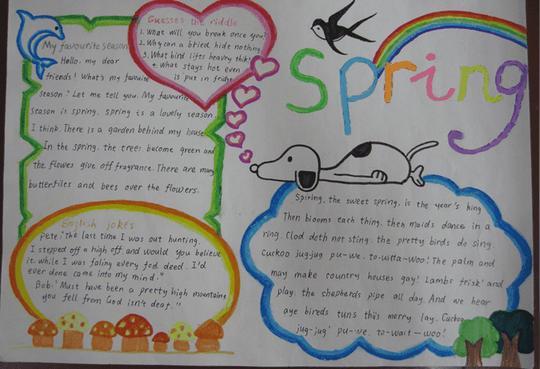 My favourite season
Hello, my dear
friends! What's my favourite
season? Let me tell you. My favourite
season is spring. spring is a lovely season.
I think. There is a garden behind my house
In the spring, the trees become green and
the flowers give off fragrance. There are many
butterflies and bees over the flowers.
Guesses the riddle
1. What will you break once you
2. Why can a blried hide nothing
3. What bird lifts heavny thik
4. What stays hot even
is put in fridge
Spring
English jokes
Pete "The last time I was out hunting.
I stepped off a high eff. and would you believe
it. while I was faling every fed deed. I'd
ever done came into my mind."
Bob. "Must have been a pretty high mountaine
you fell from God isn't deat."
Spiring. the sweet spring. is the year's king
Then blooms each thing. then maids dance in a
ring. Clod deth not sting. the pretty birds do sing.
Cuckoo jug-jug pu-we. to-witta-woo! The palm and
may make country houses gay! Lambs frisk' and
play. the shepherds pipe all day. And we hear
aye bireds tuns this merry lay. Cuckoo
jug-jug' pu-we. to-wait-woo!